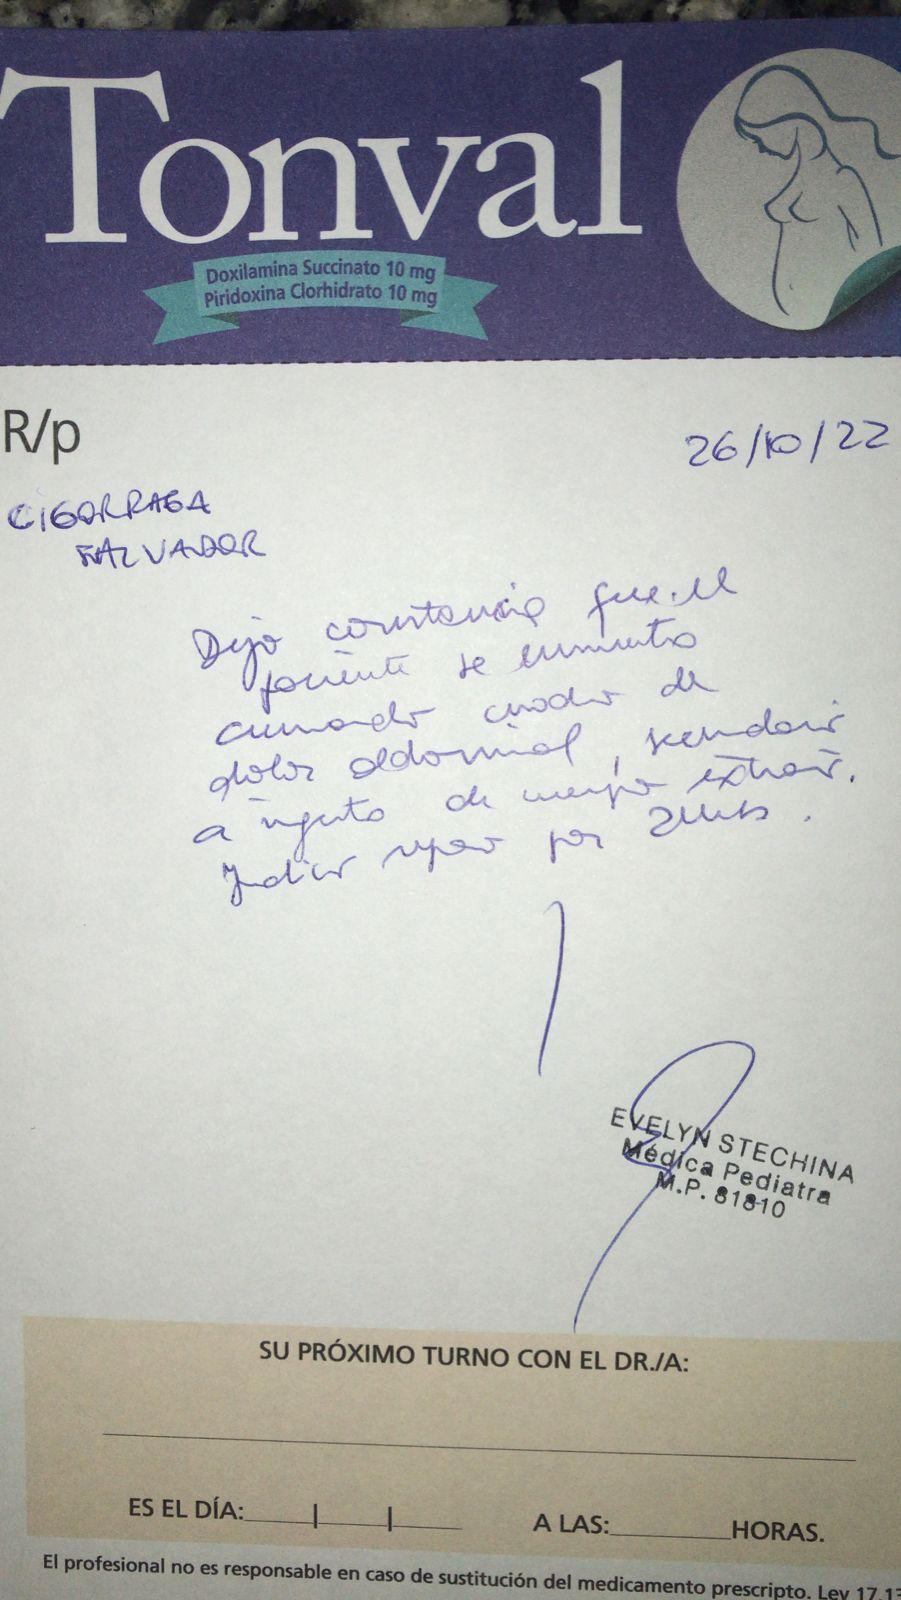 Tonval
Doxilamina Succinato 10 mg
Piridoxina Clorhidrato 10 mg
R/p
26/10/22
CIGORRAGA
SALVADOR
Dejo constancia que el
paciente se encuentra
cursando cuadro de
dolor abdominal, secundario
a ingesta de cuerpo extraño.
Indico reposo por
EVELYN STECHINA
Médica Pediatra
M.P. 81810
SU PRÓXIMO TURNO CON EL DR./A:
ES EL DÍA: A LAS: HORAS.
El profesional no es responsable en caso de sustitución del medicamento prescripto. Ley 17.13